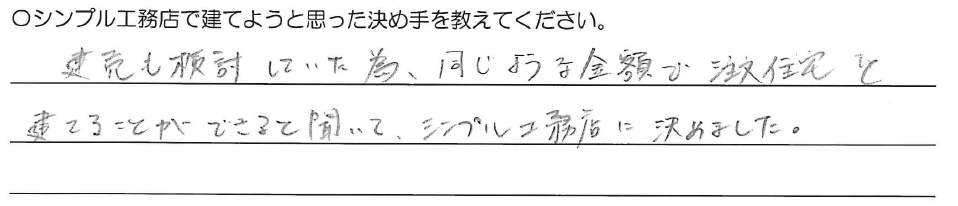 〇シンプル工務店で建てようと思った決め手を教えてください。
建売も検討していた為、同じような金額で注文住宅を
建てることができると聞いて、シンプル工務店に決めました。